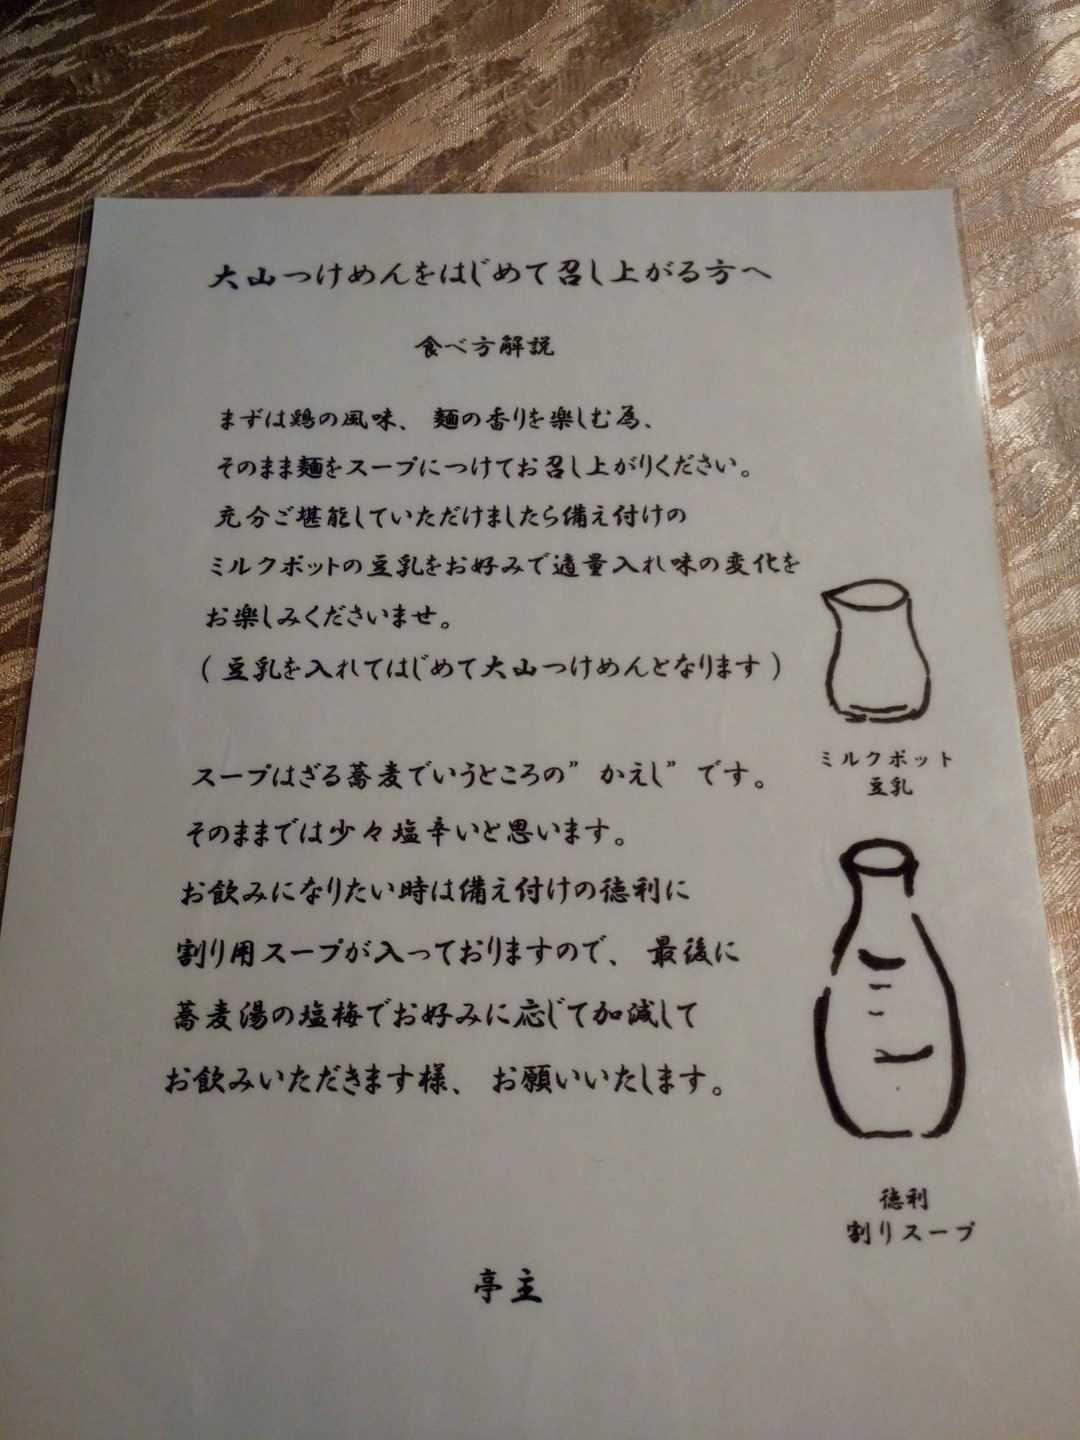 大山つけめんをはじめて召し上がる方へ
食べ方解説
まずは鶏の風味、麺の香りを楽しむ為、
そのまま麺をスープにつけてお召し上がりください。
充分ご堪能していただけましたら備え付けの
ミルクポットの豆乳をお好みで適量入れ味の変化を
お楽しみくださいませ。
(豆乳を入れてはじめて大山つけめんとなります)
ミルクポット
豆乳
スープはざる蕎麦でいうところの”かえし”です。
そのままでは少々塩辛いと思います。
お飲みになりたい時は備え付けの徳利に
割り用スープが入っておりますので、最後に
蕎麦湯の塩梅でお好みに応じて加減して
お飲みいただきます様、お願いいたします。
徳利
割りスープ
亭主